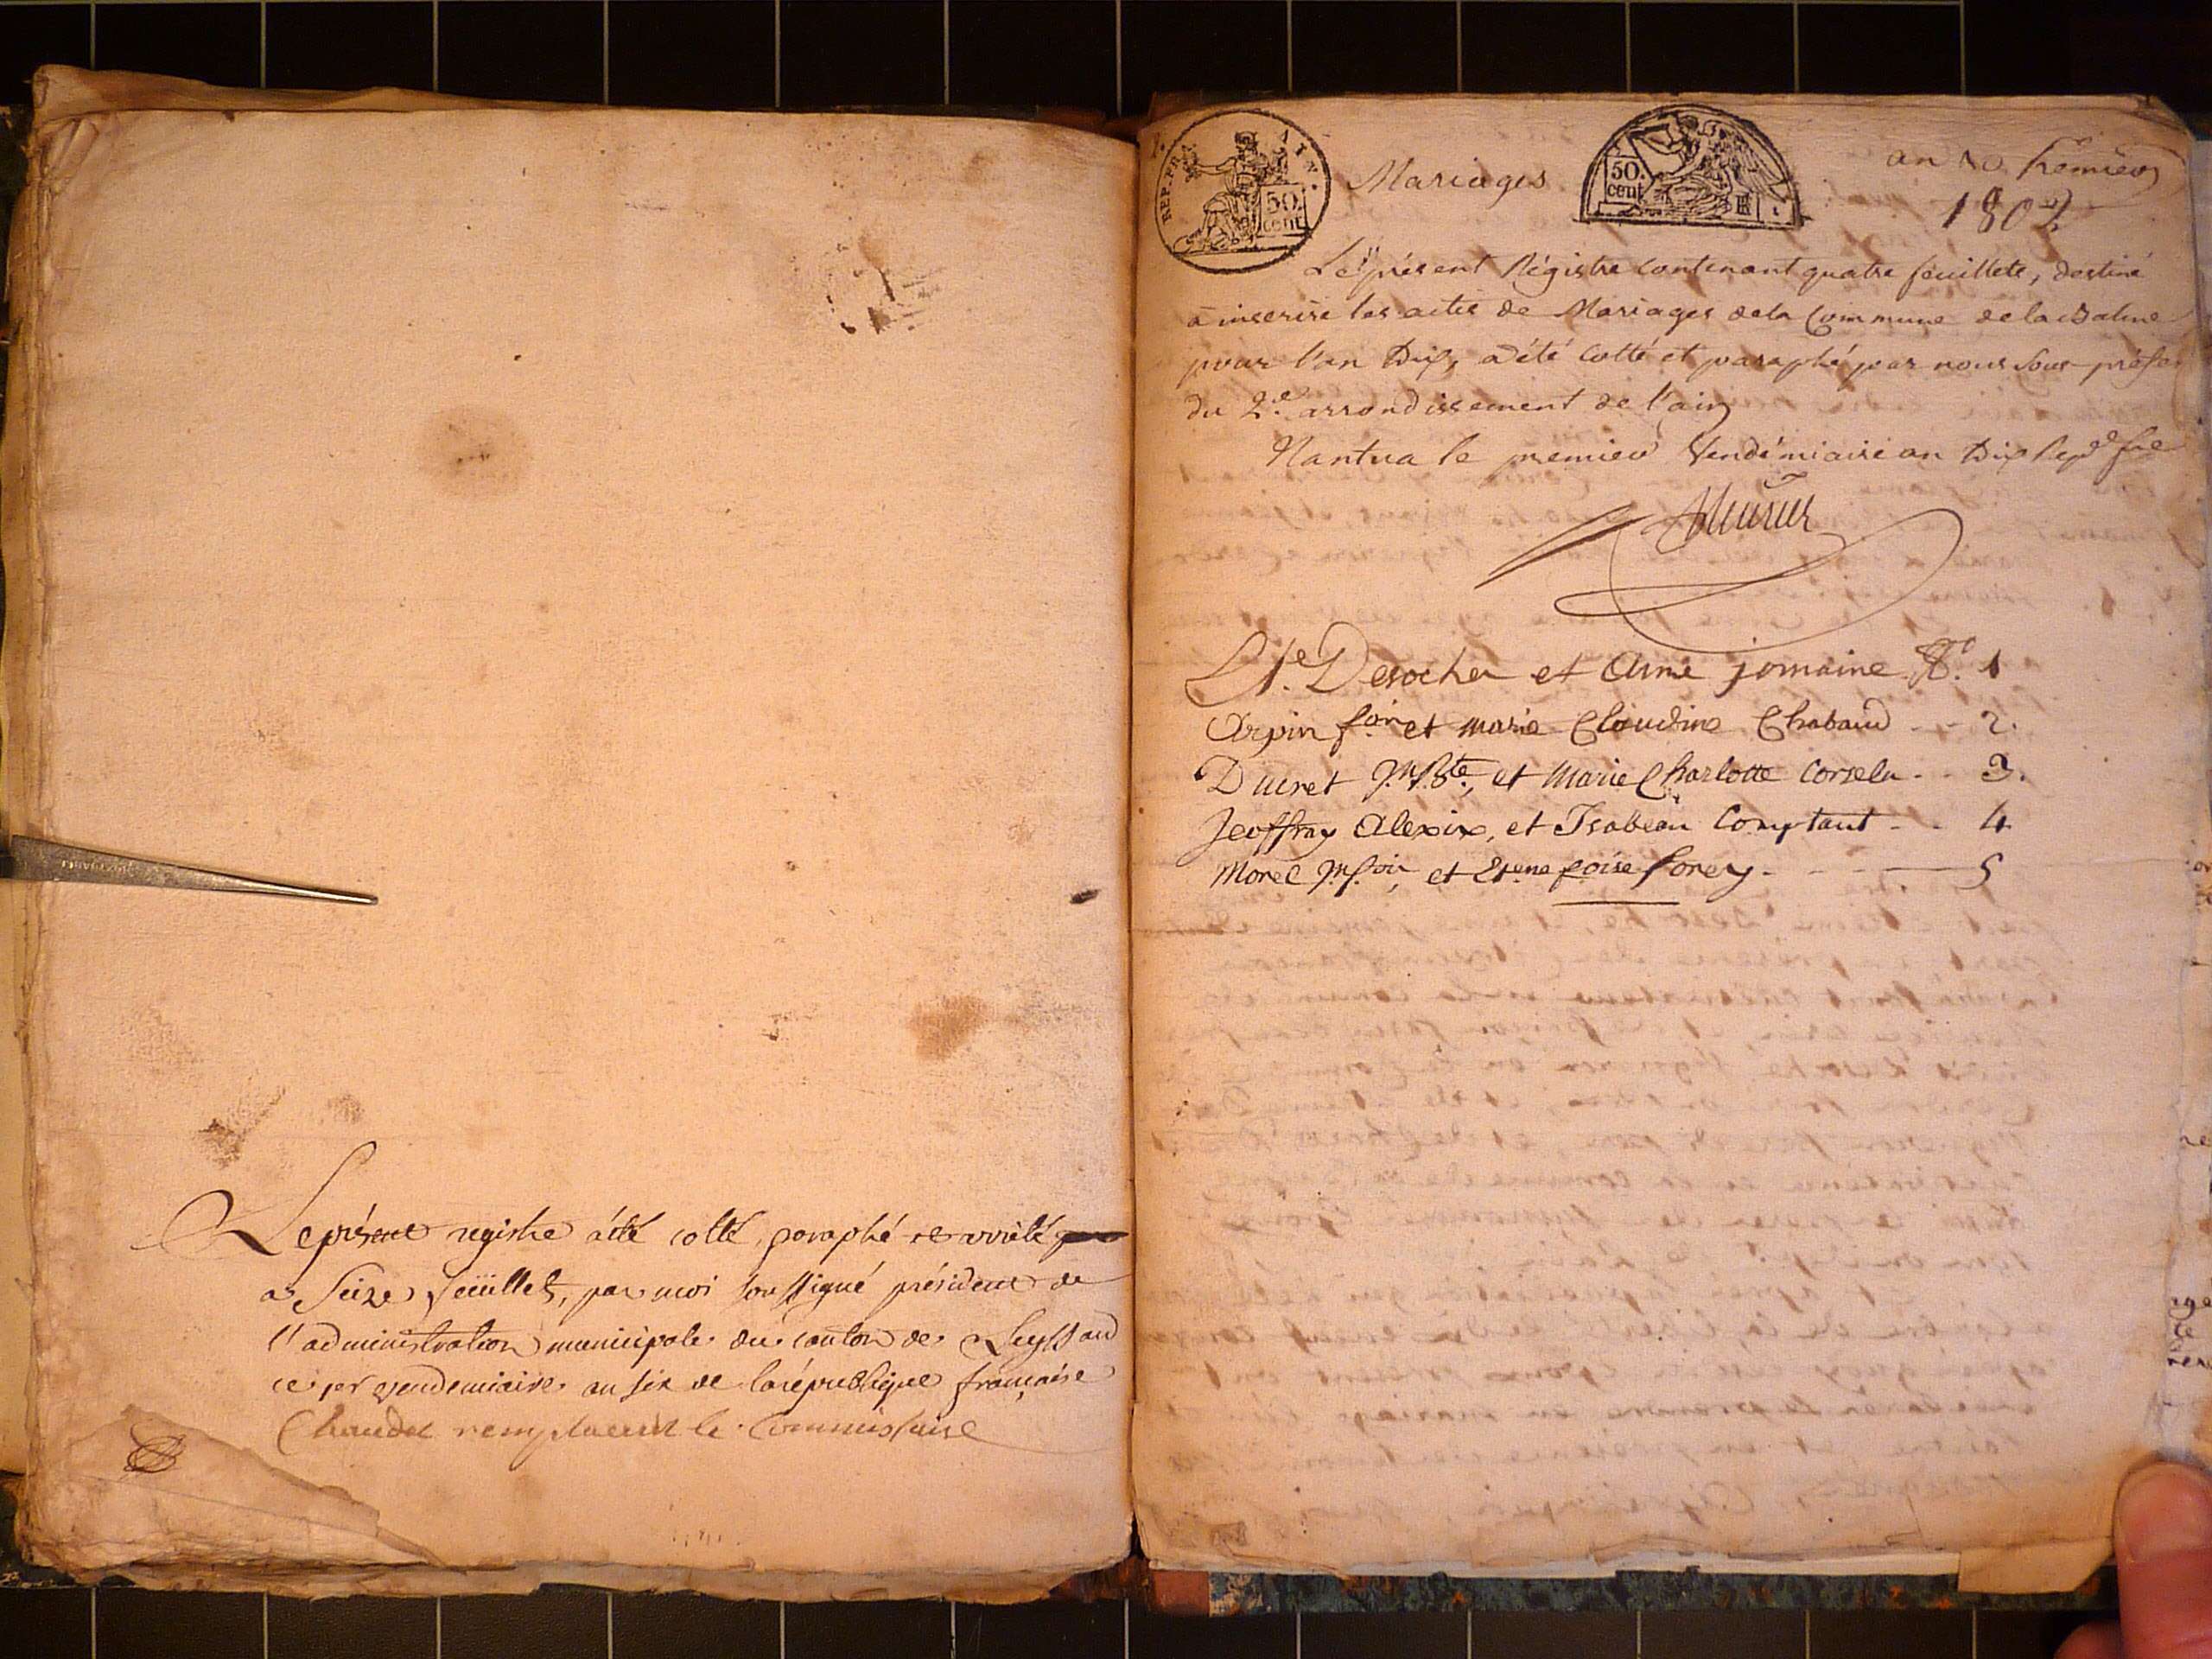 Le présent registre a été cotté, paraphé et arrêté
a Seize feuillets, par moi soussigné président de
l'administration municipale du canton de Leyssard
ce 1er vendemiaire an six de la république française
Chaudet remplacent le Commissaire
REP. FRA. AIN.
50. cent
Mariages
50. cent
an 10. premier
1802
Le présent Régistre contenant quatre feuillets, destiné
a inscrire les actes de Mariages de la Commune de la Balme
pour l'an Dix, a été cotté et paraphé par nous Sous-préfet
du 2.e arrondissement de l'ain
Nantua le premier Vendémiaire an Dix
Desocher et Anne jomaine N.o 1
Arpin f.ois et marie Claudine Chabaud - - 2.
Ducret J.n B.te, et Marie Charlotte Corselu - - 3.
Jeoffray Alexix, et Isabeau Comptant - - 4
Morel J.n f.ois, et Et.ne foise forey - - - - 5